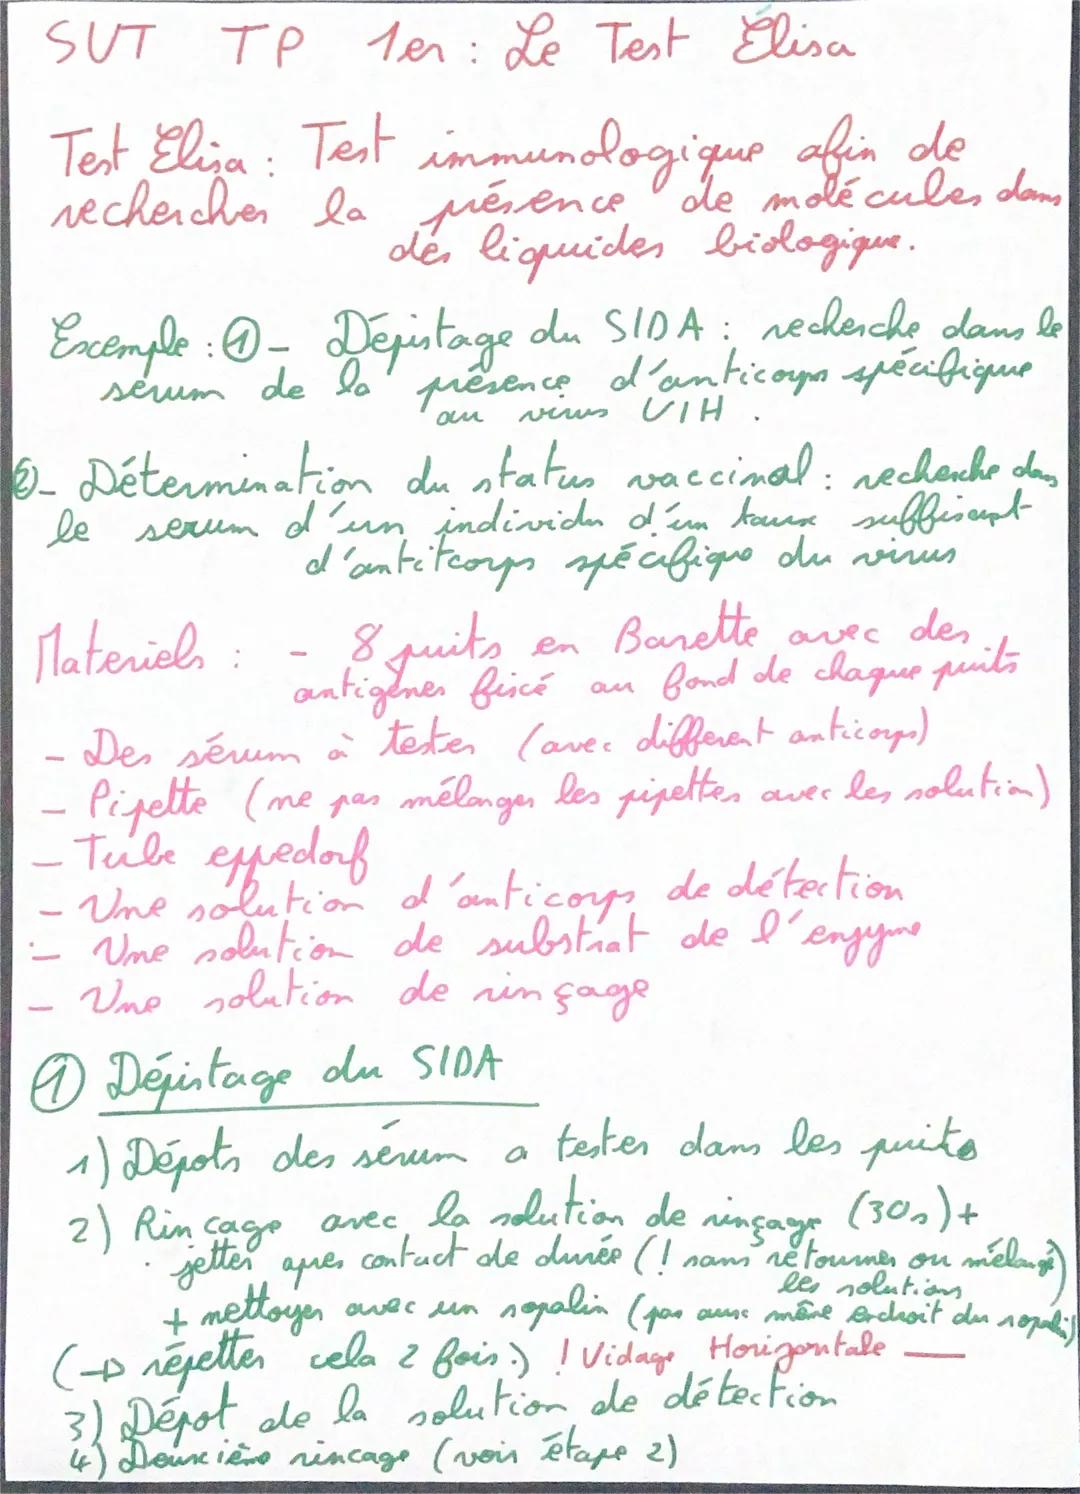 SVT TP 1er : Le Test Élisa
Test Elisa : Test immunologique afin de
rechercher la présence de molécules dans
des liquides biologique.
Exemple : ①- Dépistage du SIDA : recherche dans le
sérum de la présence d'anticorps spécifique
au virus VIH.
②- Détermination du status vaccinal : recherche dans
le serum d'un individu d'un taux suffisant
d'antitcorps spécifique du virus
Materiels : - 8 puits en Barette avec des
antigènes fixé au fond de chaque puits
- Des sérum à tester (avec different anticorps)
- Pipette (ne pas mélanger les pipettes avec les solution)
- Tube eppedorf
- Une solution d'anticorps de détection
- Une solution de substrat de l'enzyme
- Une solution de rinçage
① Dépistage du SIDA
1) Dépots des sérum a tester dans les puits
2) Rincage avec la solution de rinçage (30s) +
jetter apres contact de durée (! sans retourner ou mélangé)
les solutions
+ nettoyer avec un sopalin (pas aux même endroit du sopalin)
(→ répetter cela 2 fois.) ! Vidage Horizontale —
3) Dépot de la solution de détection
4) Deuxième rincage (voir étape 2)